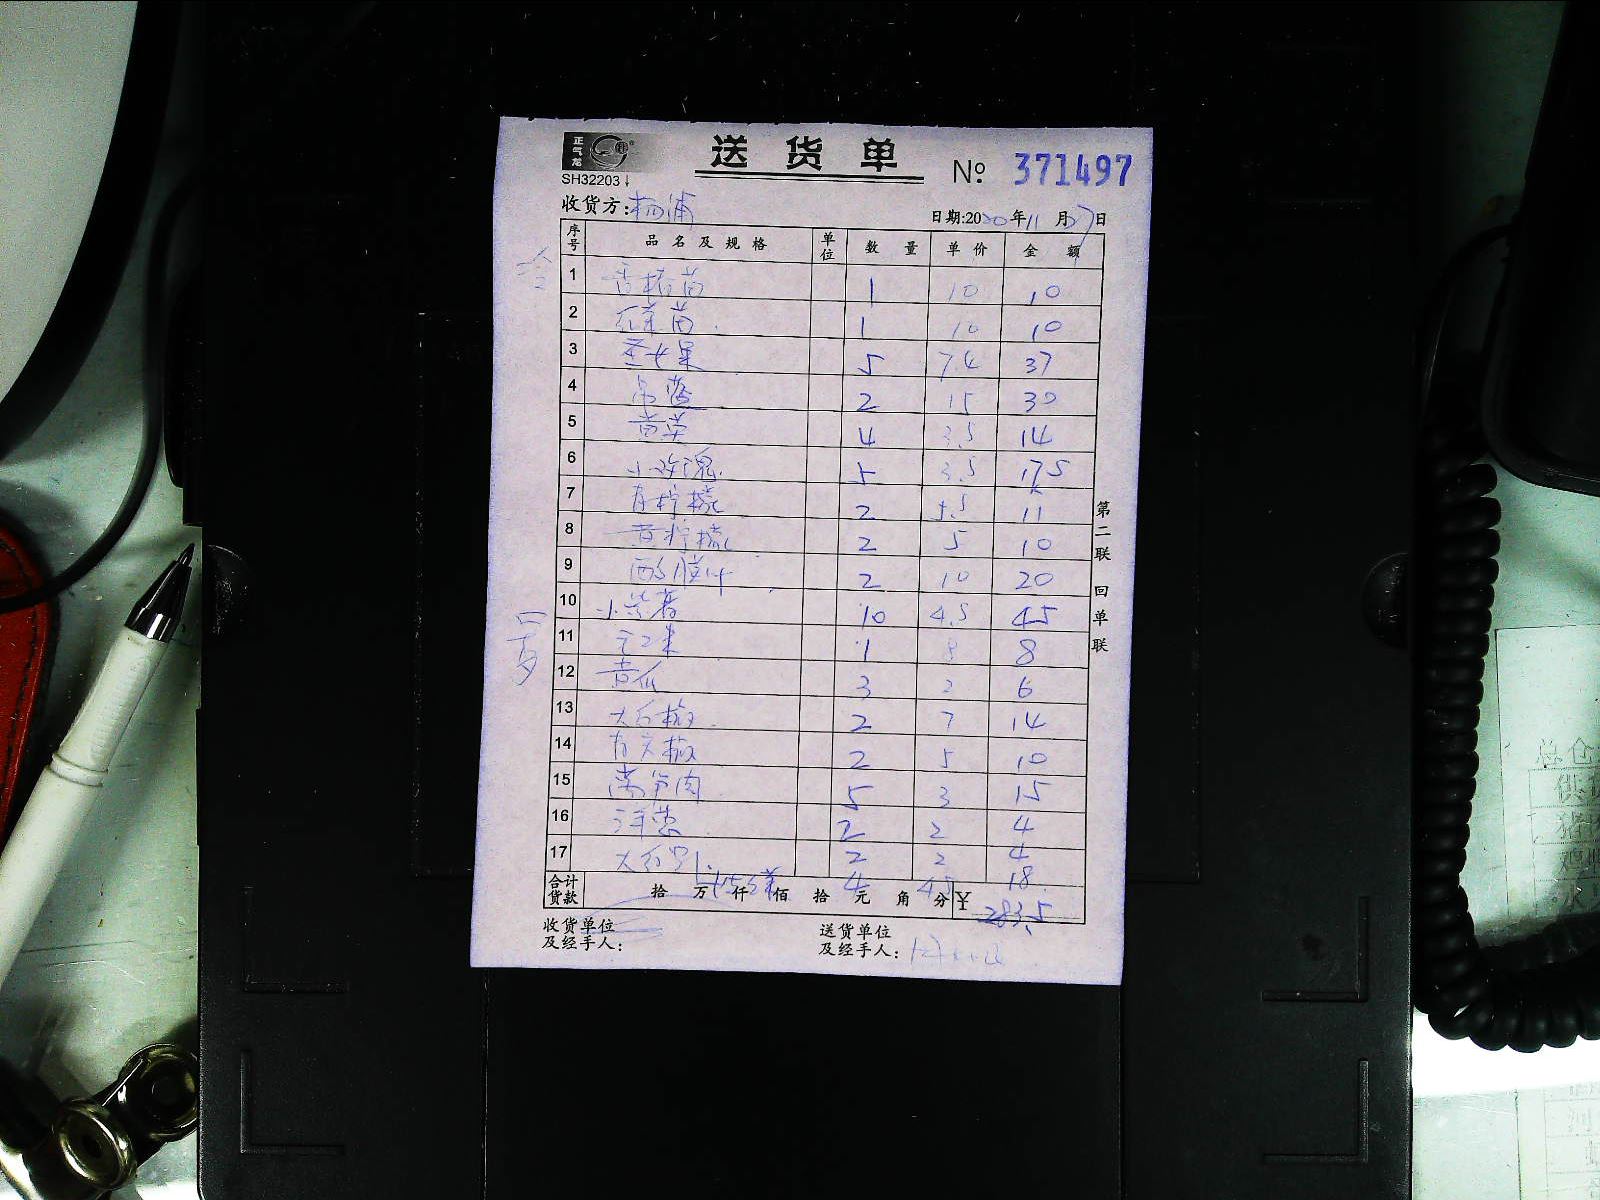 正气龙
送货单
№ 371497
SH32203
收货方:杨浦
日期:2020年11月27日
序号 品名及规格 单位 数量 单价 金额
冷
1 香椿苗 1 10 10
2 苗 1 10 10
3 圣女果 5 7.4 37
4 2 15 30
5 4 3.5 14
6 小玫瑰 5 3.5 17.5
7 青柠檬 2 5.5 11
8 黄柠檬 2 5 10
9 2 10 20
10 小紫薯 10 4.5 45
11 1 8 8
12 黄瓜 3 2 6
13 大红椒 2 7 14
14 青大椒 2 5 10
15 莴笋肉 5 3 15
16 洋葱 2 2 4
17 大红 2 2 4
4 4.5 18
合计货款 拾 万 仟 佰 拾 元 角 分 ¥ 283.5
收货单位及经手人:
送货单位及经手人:
第二联 回单联